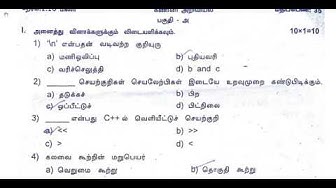 கணினி அறிவியல்
பகுதி - அ
I. அனைத்து வினாக்களுக்கும் விடையளிக்கவும். 10×1=10
1) '\n' என்பதன் வடிவற்ற குறியுரு
a) மணிஒலிப்பு b) புதியவரி
c) வரிச்செலுத்தி d) b and c
2) ______ செயற்குறிகள் செயலேற்பிகள் இடையே உறவுமுறை கண்டுபிடிக்கும்.
a) தடுக்கச் b) பிற
c) ஒப்பீட்டுச் d) பிட்நிலை
3) ______ என்பது C++ ல் வெளியீட்டுச் செயற்குறி
a) << b) >>
c) < d) >
4) கலவை கூற்றின் மறுபெயர்
a) வெறுமை கூற்று b) தொகுதி கூற்று